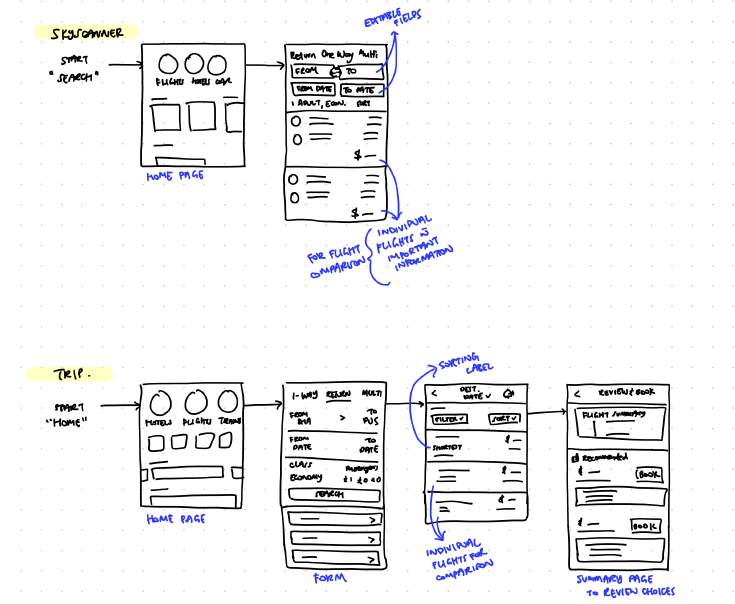 SKYSCANNER
START
"SEARCH"
FLIGHTS HOTELS CAR
HOME PAGE
EDITABLE
FIELDS
Return One Way Multi
FROM TO
FROM DATE TO DATE
1 ADULT, ECON. SORT
$
$
FOR FLIGHT
COMPARISON
INDIVIDUAL
FLIGHTS W
IMPORTANT
INFORMATION
TRIP.
START
"HOME"
HOTELS FLIGHTS TRAINS
HOME PAGE
1-WAY RETURN MULTI
FROM > TO
PUS
FROM TO
DATE DATE
CLASS Passengers
ECONOMY
SEARCH
>
>
>
FORM
SORTING
LABEL
< DEST.
DATE ∨
FILTER ∨ SORT ∨
$
SHORTEST
$
$
INDIVIDUAL
FLIGHTS FOR
COMPARISON
< REVIEW & BOOK
FLIGHT SUMMARY
Recommended
$
BOOK
$
BOOK
SUMMARY PAGE
TO REVIEW CHOICES